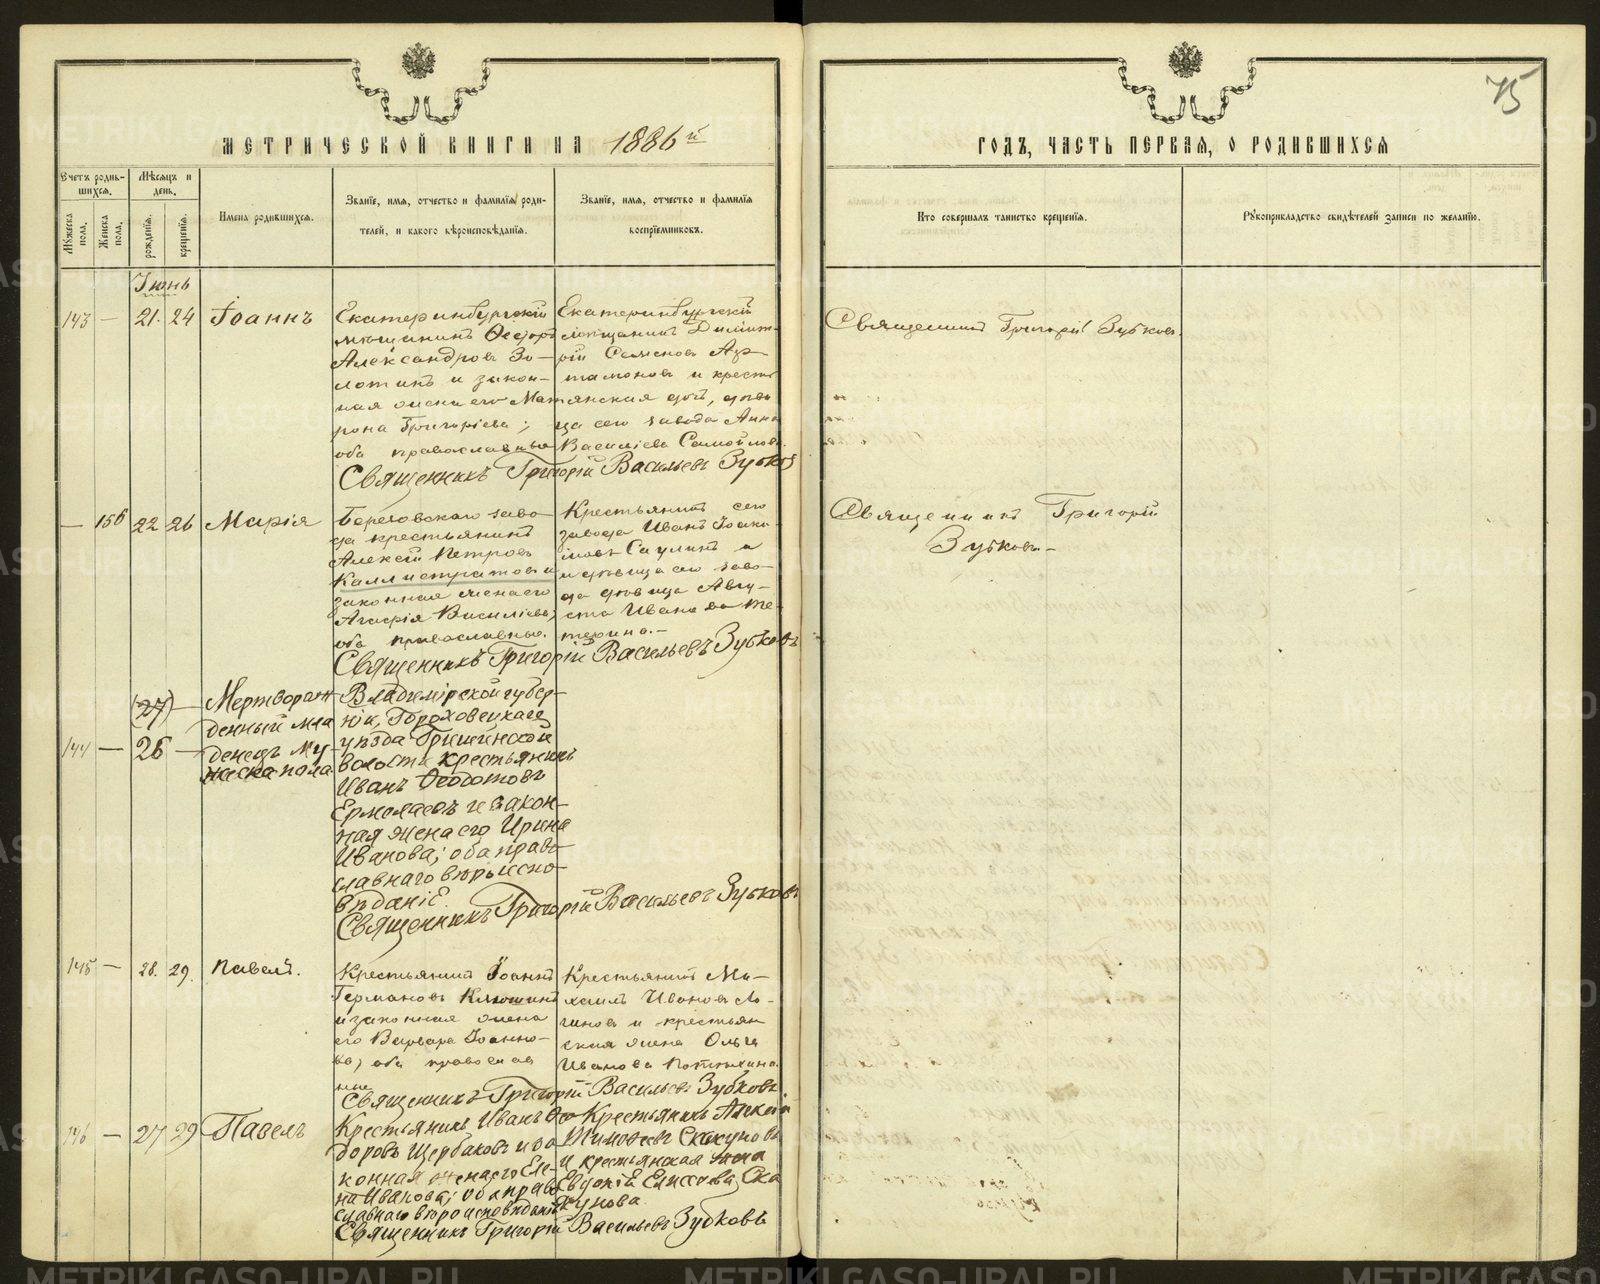 75
МЕТРИЧЕСКОЙ КНИГИ НА 1886 й
ГОДЪ, ЧАСТЬ ПЕРВАЯ, О РОДИВШИХСЯ
Счетъ родив-
шихся.
Мужеска пола.
Женска пола.
Мѣсяцъ и
день.
рожденія.
крещенія.
Имена родившихся.
Званіе, имя, отчество и фамилія роди-
телей, и какого вѣроисповѣданія.
Званіе, имя, отчество и фамилія
воспріемниковъ.
Кто совершалъ таинство крещенія.
Рукоприкладство свидѣтелей записи по желанію.
Іюнь
143 — 21. 24 Іоаннъ
Екатеринбургскій
мѣщанинъ Ѳеодоръ
Александровъ Зо-
лотинъ и закон-
ная жена его Мат-
рона Григоріева;
оба православные
Екатеринбургскій
мѣщанинъ Димит-
рій Семеновъ Ар-
тамоновъ и кресть-
янская дочь, дѣви-
ца сего завода Анна
Василіева Самойлова.
Священникъ Григорій Зубковъ.
Священникъ Григорій Васильевъ Зубковъ
— 156 22 26 Марія
Березовскаго заво-
да крестьянинъ
Алексій Петровъ
Каллистратовъ и
законная жена его
Агафія Василіева;
оба православные.
Крестьянинъ сего
завода Иванъ Іоаки-
мовъ Саулинъ и
и дѣвица сего заво-
да дѣвица Авгу-
ста Иванова Те-
терина.—
Священникъ Григорій
Зубковъ—
Священникъ Григорій Васильевъ Зубковъ
144 — (27) 26 —
Мертворож-
денный мла
денецъ му-
жеска пола
Владимірской губер-
ніи, Гороховецкаго
уѣзда Гришинской
волости крестьянинъ
Иванъ Ѳеодотовъ
Ермолаевъ и закон-
ная жена его Ирина
Иванова; оба право-
славнаго вѣроиспо-
вѣданіе.
Священникъ Григорій Васильевъ Зубковъ
145 — 28. 29. Павелъ.
Крестьянинъ Іоаннъ
Германовъ Клюшинъ
и законная жена
его Варвара Іоанно-
ва, оба православ
ные
Крестьянинъ Ми-
хаилъ Ивановъ Ло-
гиновъ и крестьян
ская жена Ольга
Иванова Потѣхина.
Священникъ Григорій Васильевъ Зубковъ.
146 — 27 29 Павелъ
Крестьянинъ Иванъ Ѳео
доровъ Щербаковъ и за
конная жена его Еле-
на Иванова; оба право
славнаго вѣроисповѣданія
Крестьянинъ Алексій
Тимоѳеевъ Скакуновъ
и крестьянская жена
Евдокія Елисеева Ска
кунова
Священникъ Григорій Васильевъ Зубковъ
METRIKI.GASO-URAL.RU